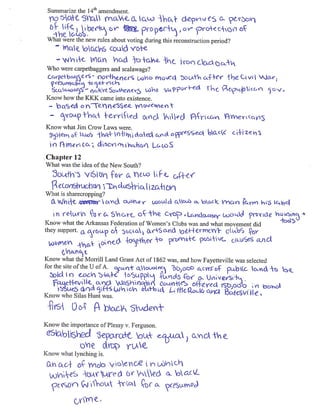 Summarize the 14th amendment.
no state shall make a law that deprives a person
of life, liberty or property, or protection of
the laws
What were the new rules about voting during this reconstruction period?
- male blacks could vote
- white man had to take the iron clad oath
Who were carpetbaggers and scalawags?
carpetbaggers - northerners who moved South after the Civil War,
presumably to get rich
Scalawags - native Southerners who supported the Republican gov.
Know how the KKK came into existence.
- based on Tennessee movement
- group that terrified and killed African Americans
Know what Jim Crow Laws were.
system of laws that intimidated and oppressed black citizens
in America; discrimination Laws
Chapter 12
What was the idea of the New South?
South's vision for a new life after
Reconstruction; Industrialization
What is sharecropping?
a white land owner would allow a black man farm his land
in return for a share of the crop. Landowner would provide housing + tools
Know what the Arkansas Federation of Women's Clubs was and what movement did
they support. a group of social, arts and betterment clubs for
women that joined together to promote positive causes and
change
Know what the Morrill Land Grant Act of 1862 was, and how Fayetteville was selected
for the site of the U of A. grant allowing 30,000 acres of public land to be
sold in each state to supply funds for a University.
Fayetteville and Washington counties offered 150,000 in bond
issues and gifts which outbid Little Rock and Batesville.
Know who Silas Hunt was.
first U of A black Student
Know the importance of Plessy v. Ferguson.
established separate but equal, and the
one drop rule
Know what lynching is.
an act of mob violence in which
whites tortured or killed a black
person without trial for a presumed
crime.